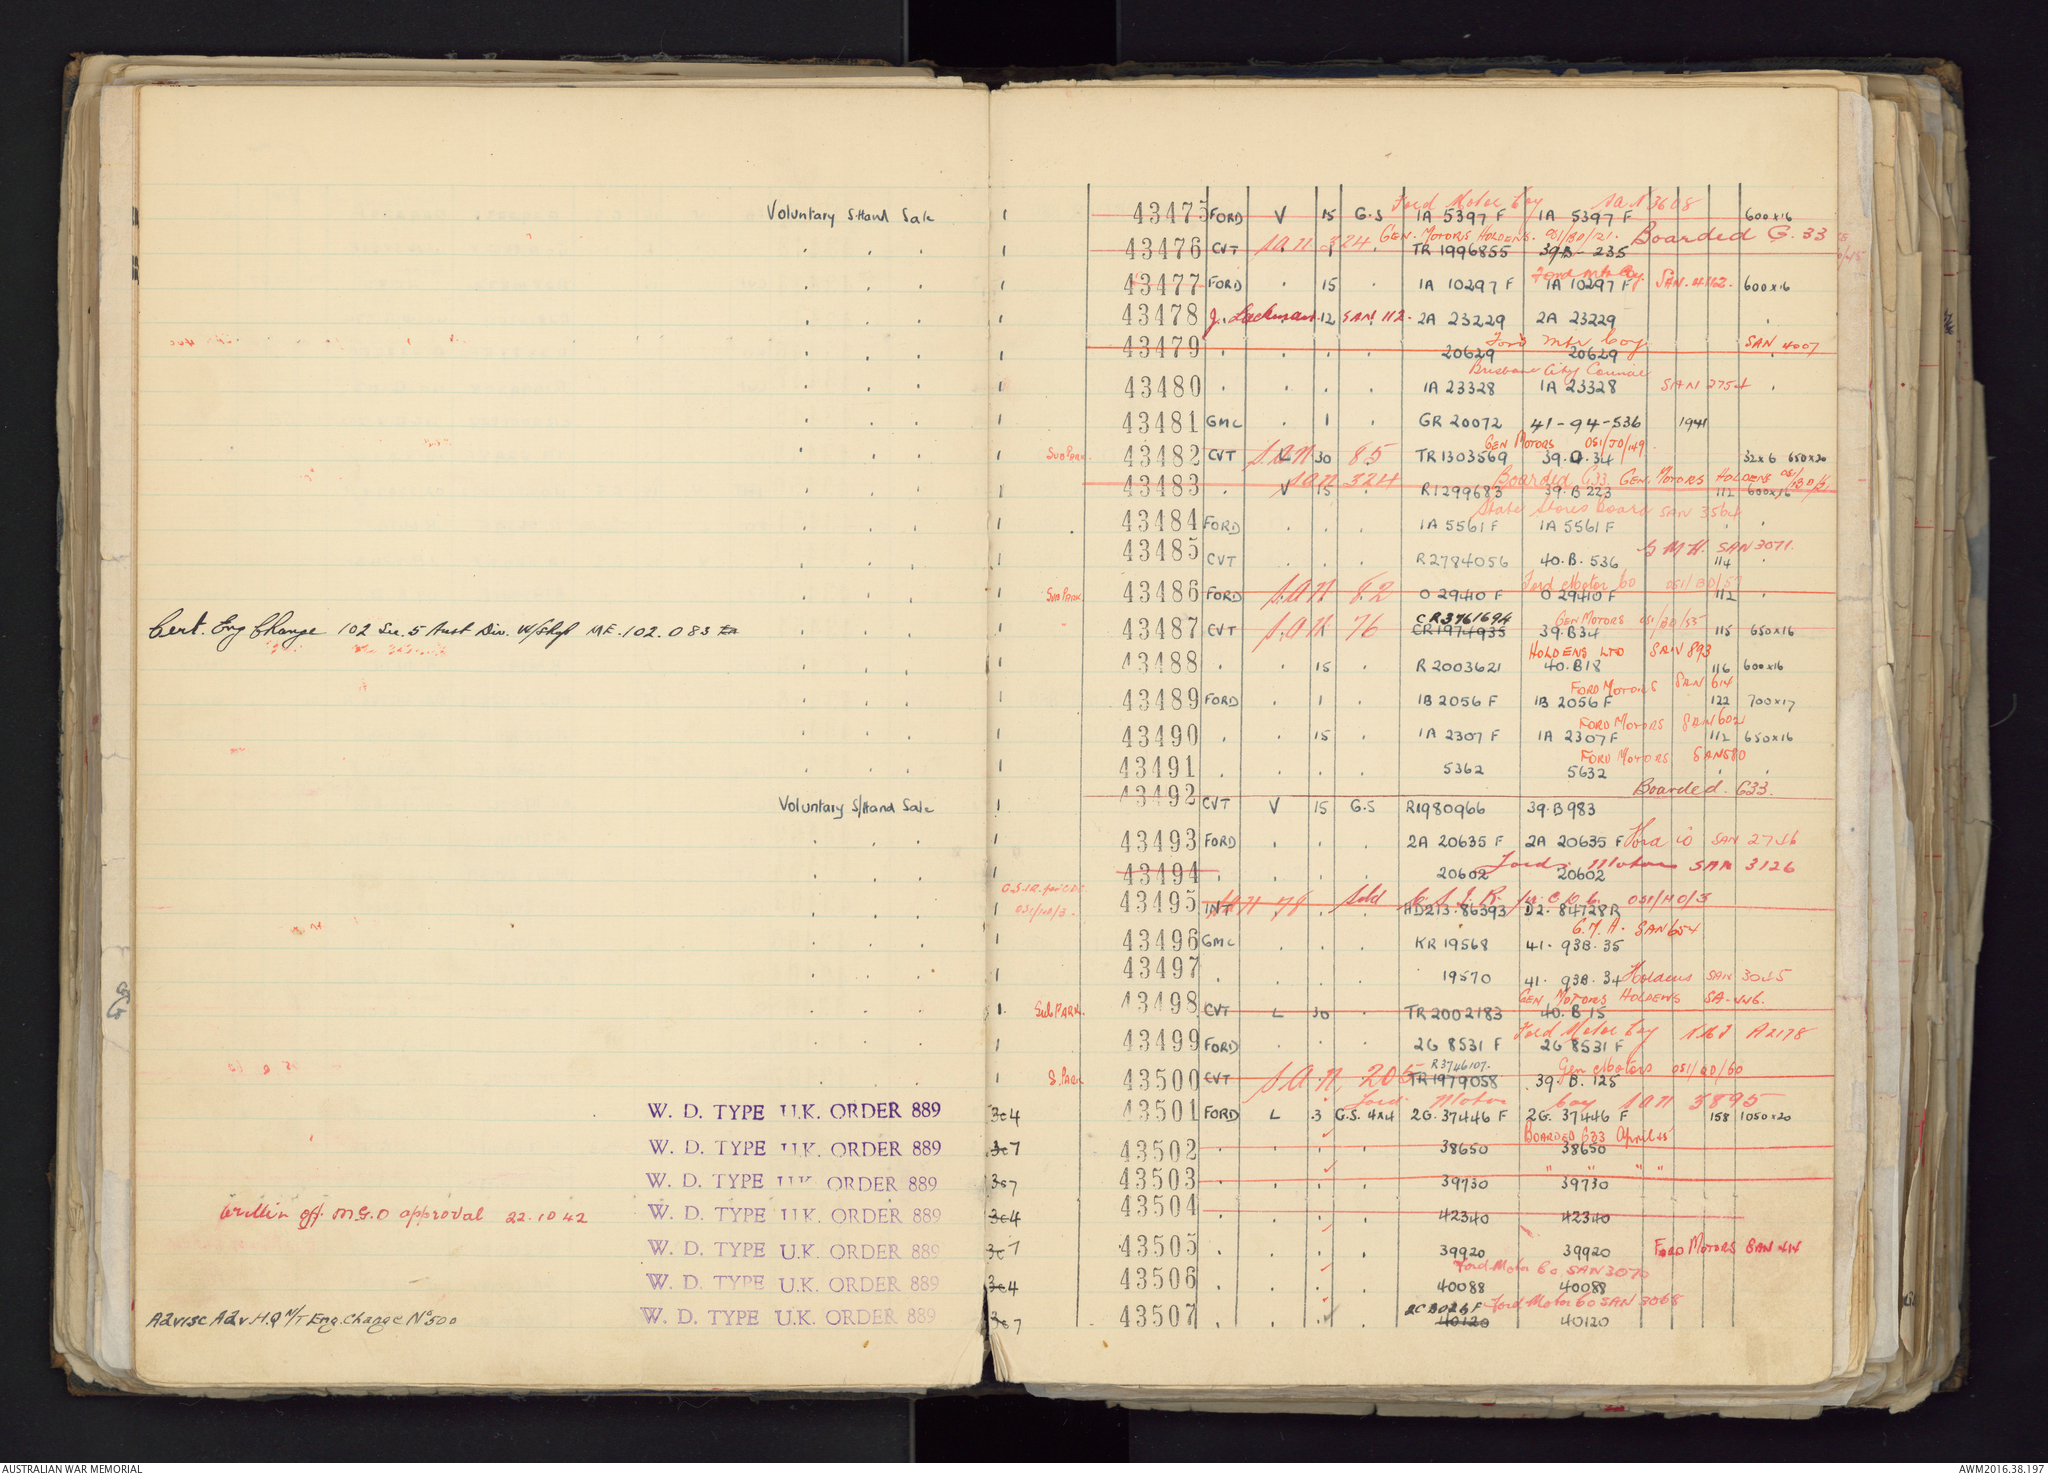 Voluntary S.Hand Sale 1 43475 FORD V 15 G.S 1A 5397 F 1A 5397 F Ford Motor Coy SAN 3608 600x16
. . . 1 43476 CVT SAN 324 . 1 . GEN. MOTORS HOLDENS. 051/BD/21. TR 1996855 39B - 235 Boarded G.33
. . . 1 43477 FORD . 15 . 1A 10297 F 1A 10297 F Ford Mtr Coy SAN. 4162. 600x16
. . . 1 43478 J. Lackman 12 SAN 112. 2A 23229 2A 23229 .
. . . 1 43479 . . . . 20629 20629 Ford Mtr Coy SAN 4007
. . . 1 43480 . . . . 1A 23328 1A 23328 Brisbane City Council SAN 2754 .
. . . 1 43481 GMC . 1 . GR 20072 41-94-536 1941
. . . 1 SUB PARK. 43482 CVT SAN L 30 85 TR1303569 39.Q.34 GEN MOTORS 051/JO/149 32x6 650x20
. . . 1 43483 . V 15 SAN 324 R1299683 39.B 223 Boarded G33 GEN. MOTORS HOLDENS 112 600x16
. . . 1 43484 FORD . . . 1A 5561 F 1A 5561 F State Stores Board SAN 3564 . .
. . . 1 43485 CVT . . . R2784056 40.B.536 G M H. SAN 3071. 114 .
. . . 1 SUB PARK 43486 FORD SAN 82 O 29410 F O 29410 F Ford Motor Co 051/BD/57 112 .
Cert. Eng Change 102 Sec. 5 Aust Div. W/Shop ME.102.083 . . . 1 43487 CVT SAN 76 CR3761694 CR1974935 39.B34 GEN MOTORS 051/BD/55 115 650x16
. . . 1 43488 . . 15 . R 2003621 40.B18 HOLDENS LTD SAN 893 116 600x16
. . . 1 43489 FORD . 1 . 1B 2056 F 1B 2056 F FORD MOTORS SAN 614 122 700x17
. . . 1 43490 . . 15 . 1A 2307 F 1A 2307 F FORD MOTORS SAN 602 112 650x16
. . . 1 43491 . . . . 5362 5632 FORD MOTORS SAN 580 . .
Voluntary S/Hand Sale 1 43492 CVT V 15 G.S R1980966 39.B 983 Boarded. G33.
. . . 1 43493 FORD . . . 2A 20635 F 2A 20635 F SAN 2716
. . . 1 43494 . . . . 20602 20602 Ford Motors SAN 3126
. . . 1 C.S.I.R. for C.D.C. 051/HO/3. 43495 INT SAN 78 Sold C.S.I.R. for C.D.C. 051/HO/3 HD213.86393 D2.84728R
. . . 1 43496 GMC . . . KR 19568 41. 93B. 35 G.M.H. SAN 654
. . . 1 43497 . . . . 19570 41. 93B. 34 Holdens SAN 3045
. . . 1 Sub PARK. 43498 CVT L 30 . TR 2002183 40.B 15 GEN MOTORS HOLDENS SAN 446.
. . . 1 43499 FORD . . . 2G 8531 F 2G 8531 F Ford Motor Coy A2178
. . . 1 S.PARK 43500 CVT SAN 205 R3746107. TR 1979058 39.B.125 Gen Motors 051/QD/60
W. D. TYPE U.K. ORDER 889 3c4 43501 FORD L 3 G.S. 4x4 2G.37446 F 2G. 37446 F Ford Motor Coy SAN 3895 158 1050x20
W. D. TYPE U.K. ORDER 889 3c7 43502 . . . . 38650 38650 BOARDED G33 April 45
W. D. TYPE U.K. ORDER 889 3c7 43503 . . . . 39730 39730 " " " "
Written off. M.G.O approval 22.10 42 W. D. TYPE U.K. ORDER 889 3c4 43504 . . . . 42340 42340
W. D. TYPE U.K. ORDER 889 3c7 43505 . . . . 39920 39920 FORD MOTORS SAN 414
W. D. TYPE U.K. ORDER 889 3c4 43506 . . . . 40088 40088 Ford Motor Co SAN 3070
Advise Adv. H.Q M/T Eng. Change No 500 W. D. TYPE U.K. ORDER 889 3c7 43507 . . . . 2C B026 F 40120 40120 Ford Motor Co SAN 3068
AUSTRALIAN WAR MEMORIAL AWM2016.38.197